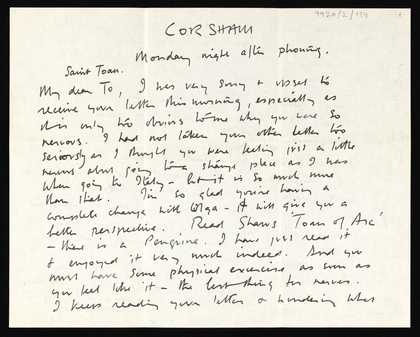 CORSHAM
Monday night after phoning.
Saint Joan.
My dear Jo, I was very sorry & upset to
receive your letter this morning, especially as
it is only too obvious to me why you were so
nervous. I had not taken your other letter too
seriously as I thought you were feeling just a little
nervous about going to a strange place as I was
when going to Italy – but it is so much more
than that. I'm so glad you're having a
complete change with Olga – it will give you a
better perspective. Read Shaw's 'Joan of Arc'
– there is a Penguin. I have just read it
& enjoyed it very much indeed. And you
must have some physical exercise, as soon as
you feel like it – the best thing for nerves.
I keep reading your letter & wondering what